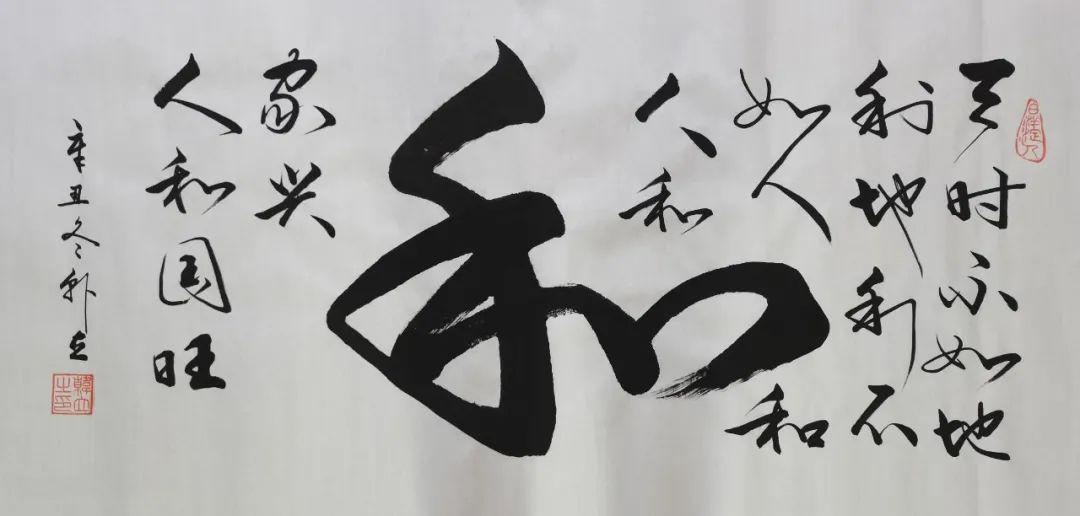 天时不如地
利地利不
如人和
人和
和
家兴
人和国旺
辛丑冬韩立
韓立之印